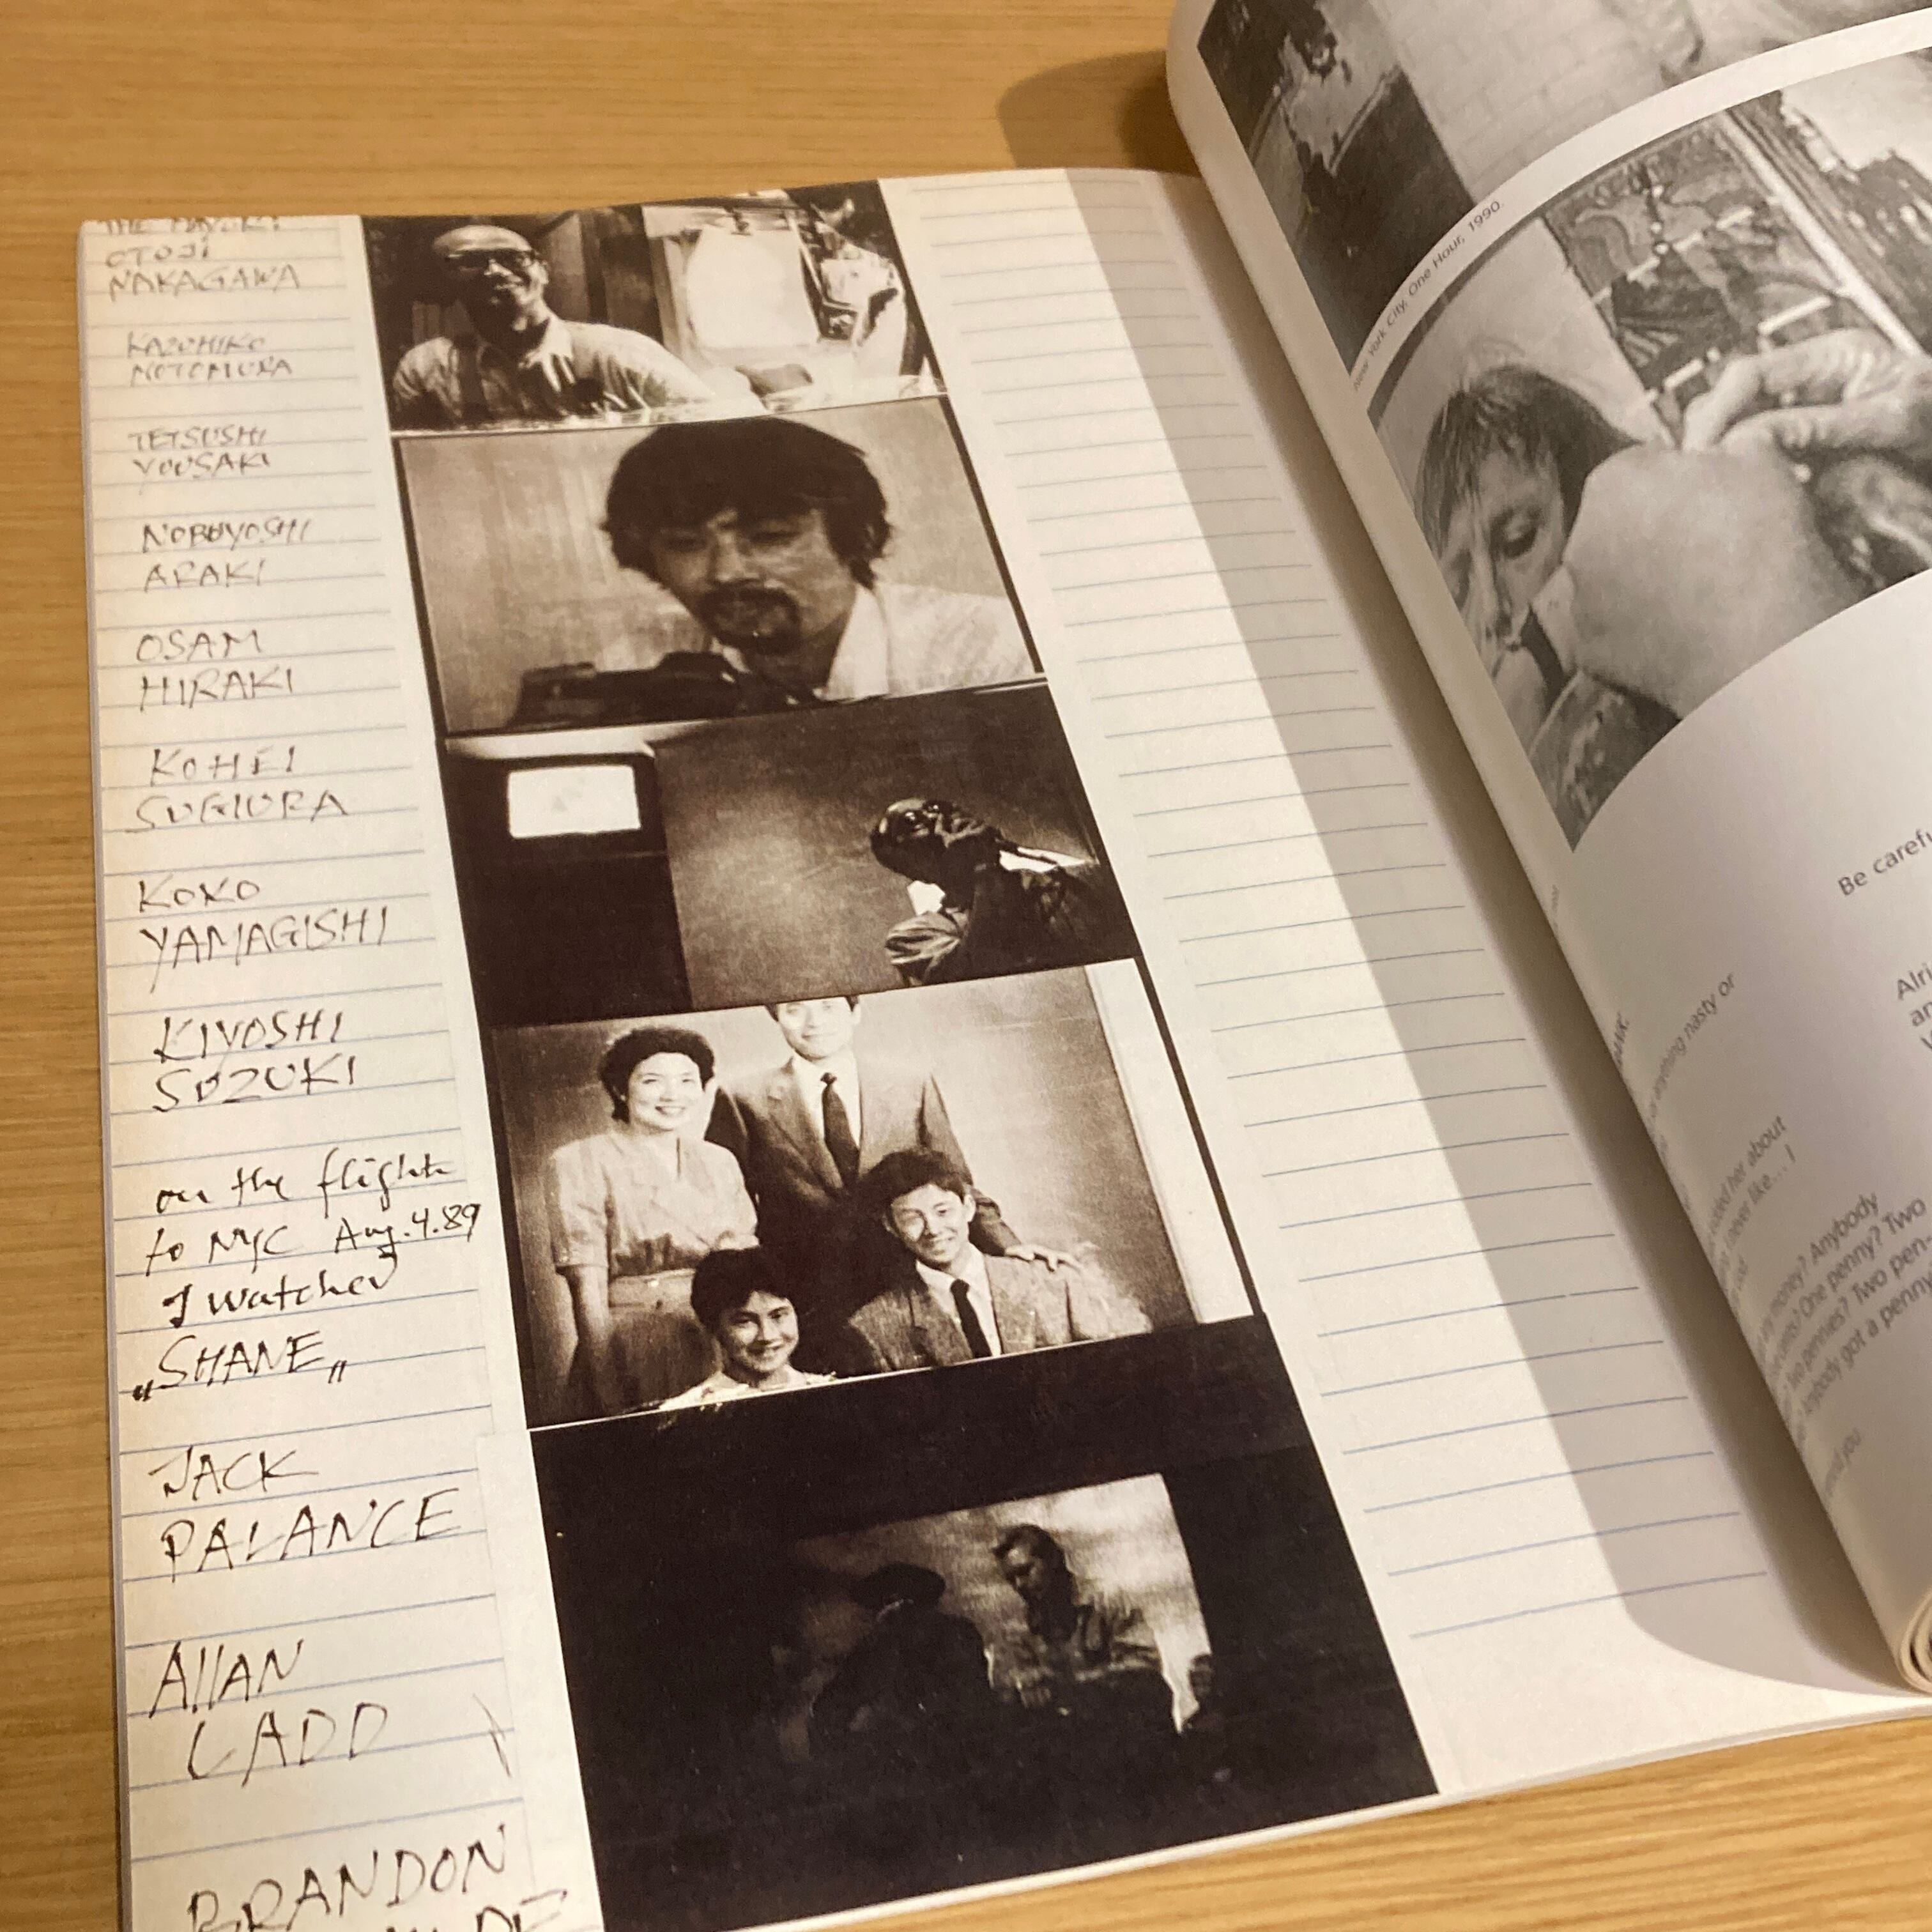 THE MAYOR:
OTOJI
NAKAGAWA
KAZUHIKO
MOTOMURA
TETSUSHI
YOUSAKI
NOBUYOSHI
ARAKI
OSAM
HIRAKI
KOHEI
SUGIURA
KOKO
YAMAGISHI
KIYOSHI
SUZUKI
on the flight
to NYC Aug.4.89
I watched
„SHANE„
JACK
PALANCE
AllAN
LADD
BRANDON
New York City, One Hour, 1990.
Be carefu
Alri
an
anything nasty or
kidded her about
I never like... I
money? Anybody
One penny? Two
Two pennies? Two pen-
Anybody got a penny
you.